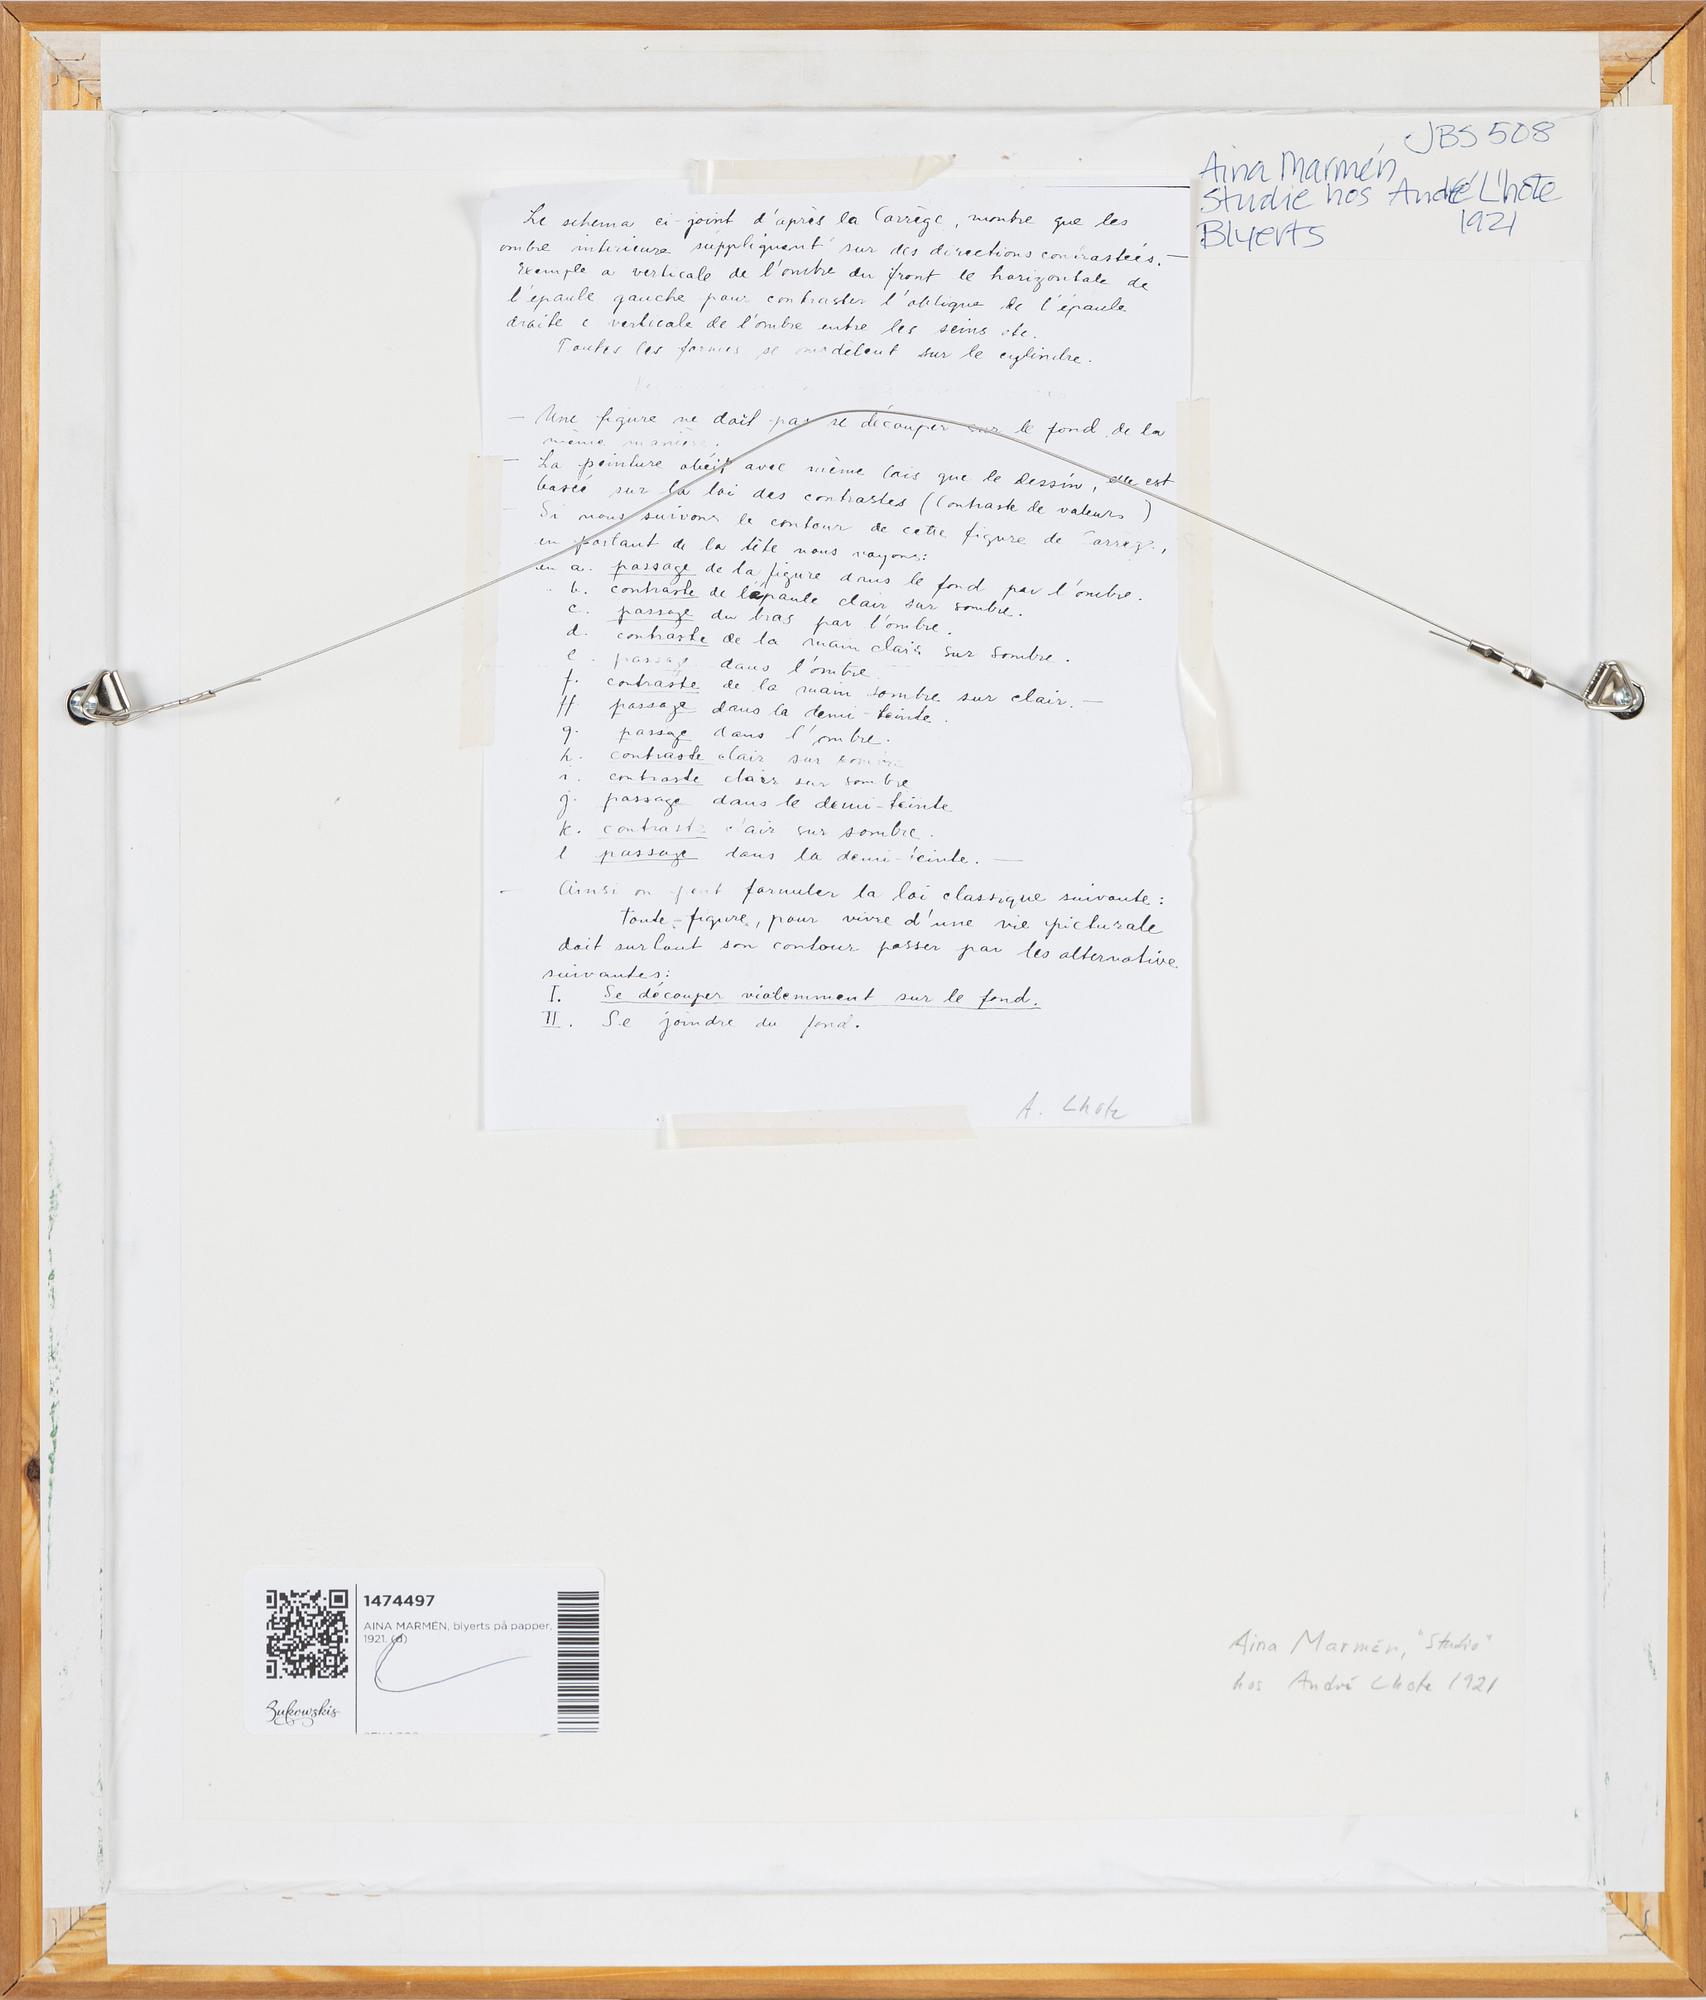 JBS 508
Aina Marmén
Studie hos André Lhote
1921
Blyerts
Le schema ci-joint d'après la Corrège, montre que les
ombre interieure suppliquent sur des directions contrastées. —
Exemple a verticale de l'ombre du front le horizontale de
l'épaule gauche pour contraster l'oblique de l'épaule
droite c verticale de l'ombre entre les seins etc.
Toutes les formes se modèlent sur le cylindre.
— Une figure ne doit pas se découper sur le fond de la
même manière.
— La peinture obéit avec même lois que le dessin, elle est
basée sur la loi des contrastes (Contraste de valeurs)
— Si nous suivons le contour de cette figure de Corrège,
en partant de la tête nous voyons:
en a. passage de la figure dans le fond par l'ombre.
b. contraste de l'épaule clair sur sombre.
c. passage du bras par l'ombre.
d. contraste de la main clair sur sombre.
e. passage dans l'ombre.
f. contraste de la main sombre sur clair. —
ff passage dans la demi-teinte.
g. passage dans l'ombre.
h. contraste clair sur sombre
i. contraste clair sur sombre
j. passage dans le demi-teinte
k. contraste clair sur sombre.
l passage dans la demi-teinte. —
— Ainsi on peut formuler la loi classique suivante:
Toute figure, pour vivre d'une vie picturale
doit surtout son contour passer par les alternative
suivantes:
I. Se découper violemment sur le fond.
II. Se joindre du fond.
A. Lhote
1474497
AINA MARMÉN, blyerts på papper,
1921. (d)
Bukowskis
Aina Marmén, "Studio"
hos André Lhote 1921